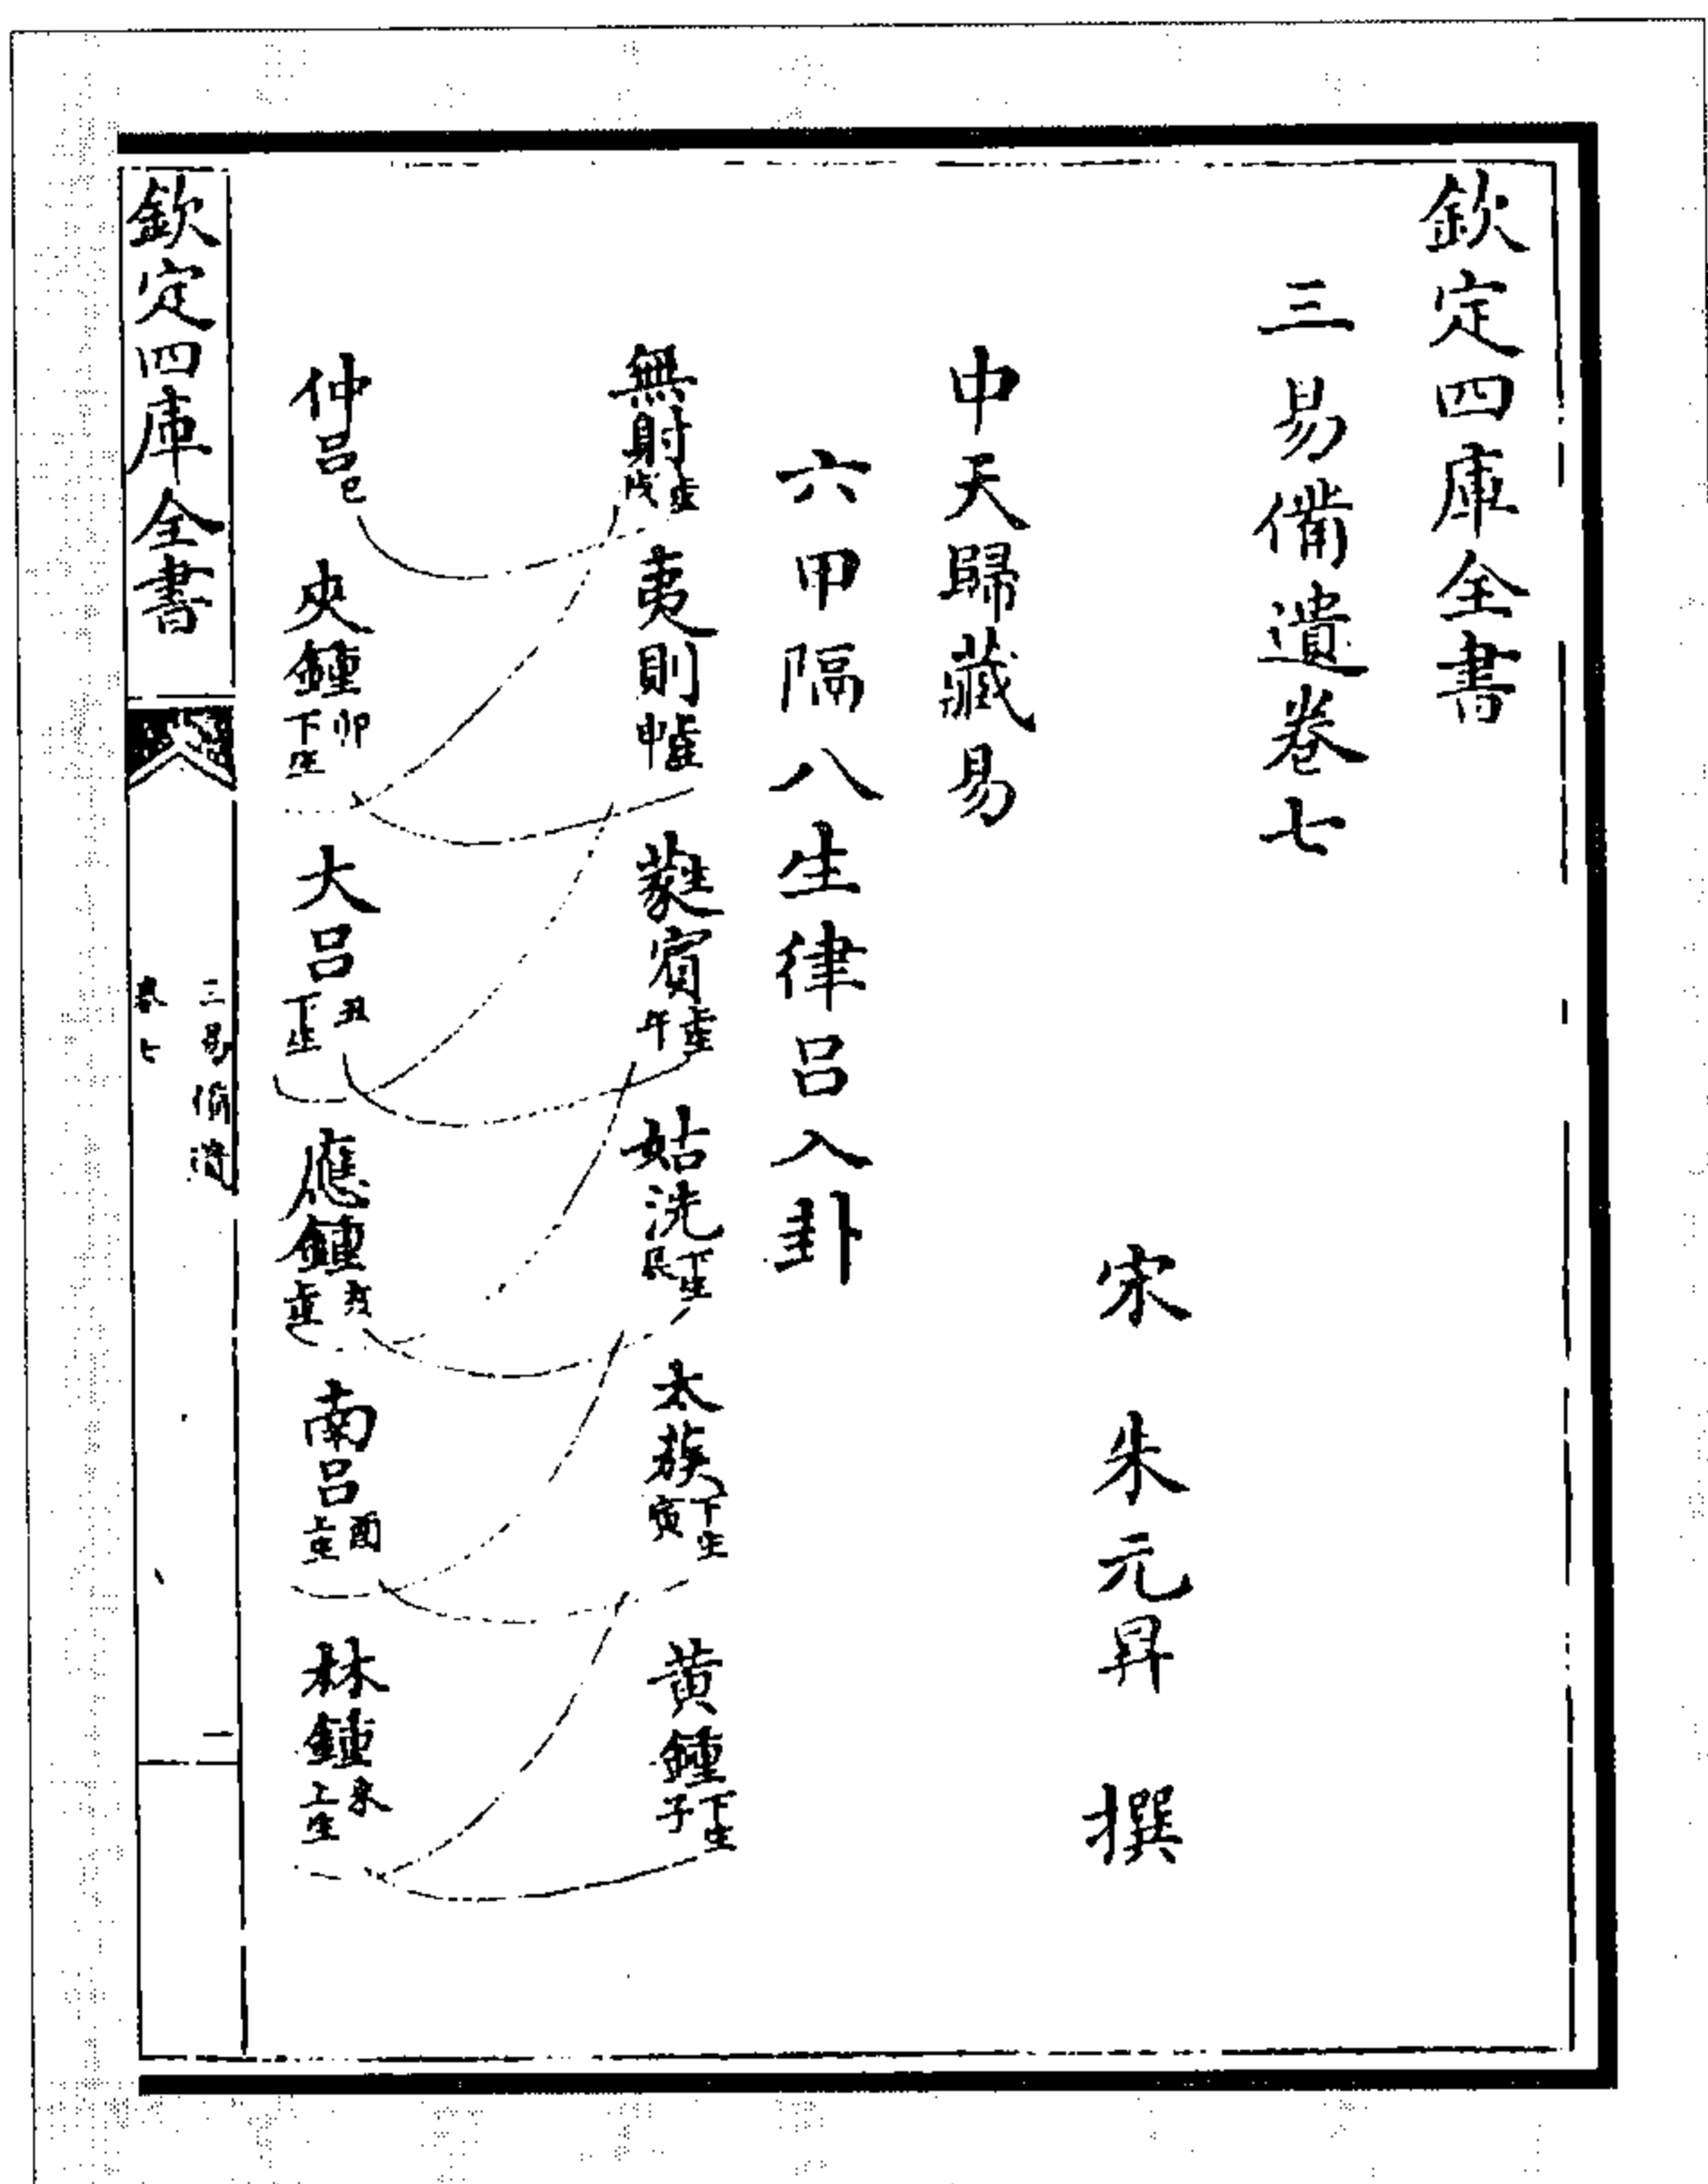 欽定四庫全書
三易備遺卷七
宋 朱元昇 撰
中天歸藏易
六甲隔八生律呂入卦
無射上生戌 夷則上生申 蕤賓上生午 姑洗下生辰 太蔟下生寅 黄鍾下生子
仲呂巳 夾鍾卯下生 大呂丑下生 應鍾亥上生 南呂酉上生 林鍾未上生
欽定四庫全書
三易備遺
卷七
一